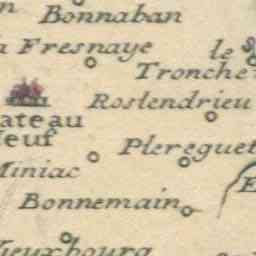 Bonnaban
Fresnaye
le
Tronchet
Roslendrieu
ateau
Neuf
Plereguet
Miniac
Bonnemain
Vieuxbourg